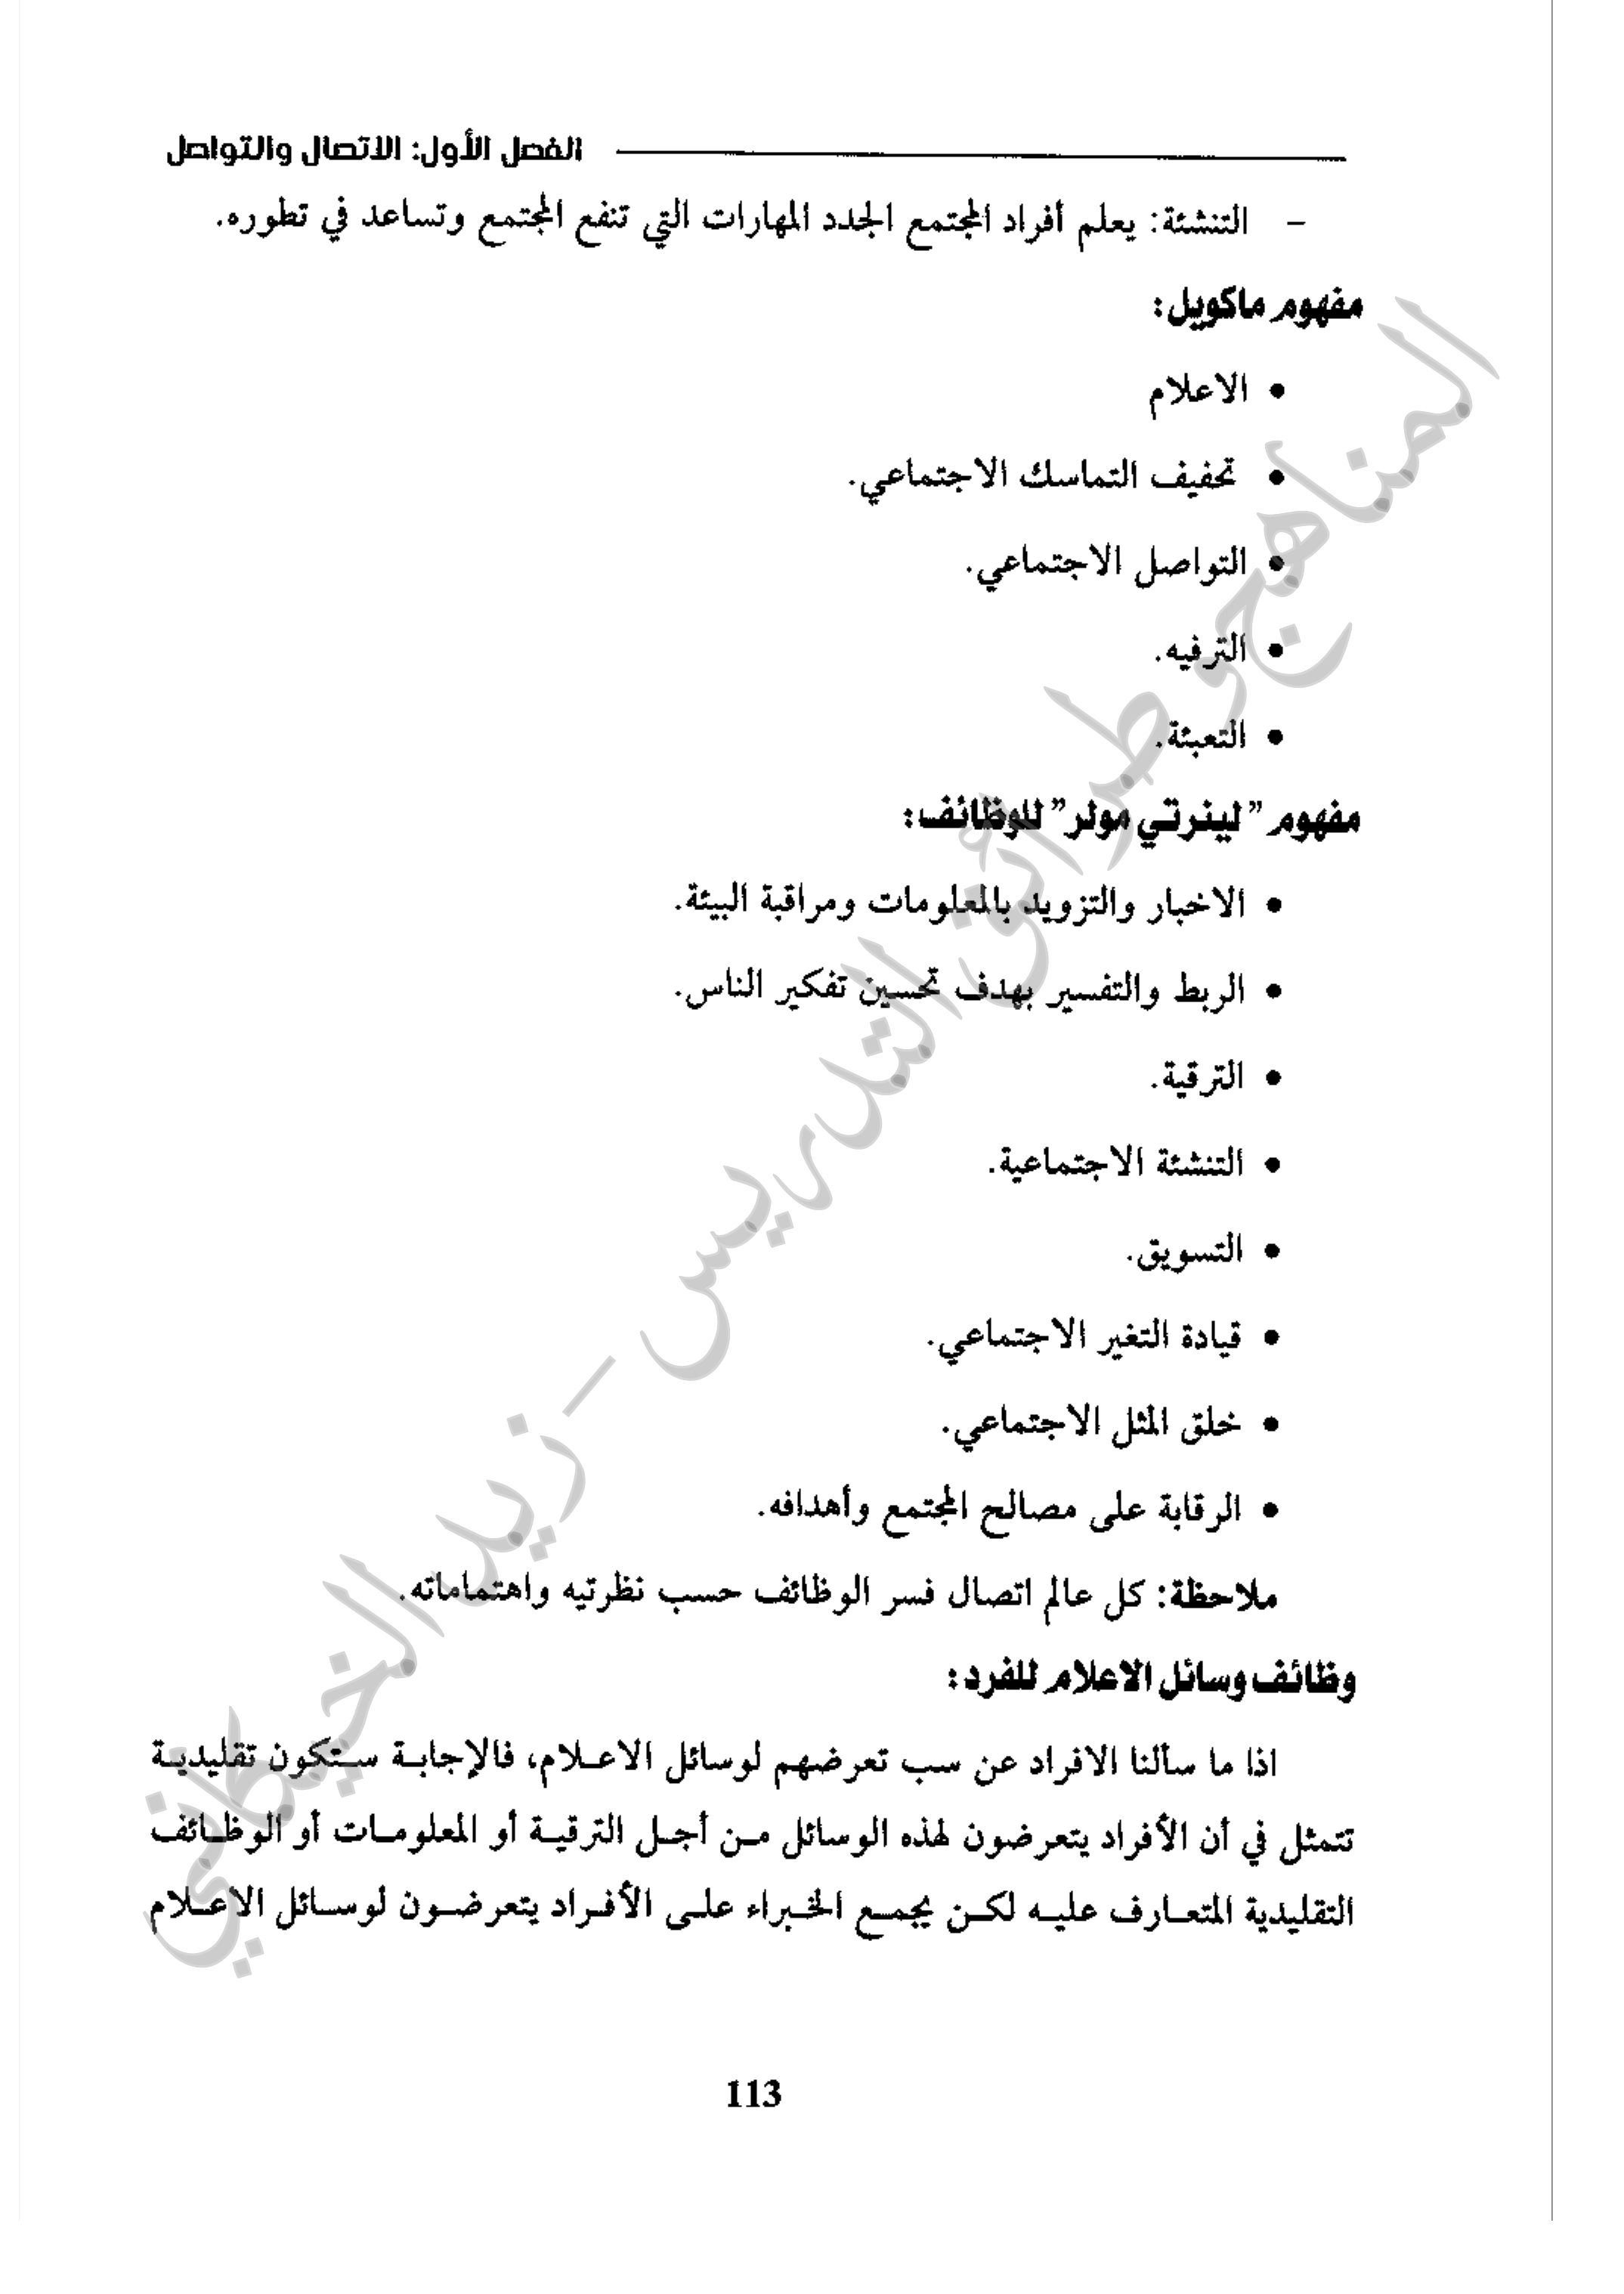 الفصل الأول: الاتصال والتواصل
- التنشئة: يعلم أفراد المجتمع الجدد المهارات التي تنفع المجتمع وتساعد في تطوره.
مفهوم ماكويل:
• الاعلام
• تحفيف التماسك الاجتماعي.
• التواصل الاجتماعي.
• الترفيه.
• التعبئة.
مفهوم "لينرتي مولر" للوظائف:
• الاخبار والتزويد بالمعلومات ومراقبة البيئة.
• الربط والتفسير بهدف تحسين تفكير الناس.
• الترقية.
• التنشئة الاجتماعية.
• التسويق.
• قيادة التغير الاجتماعي.
• خلق المثل الاجتماعي.
• الرقابة على مصالح المجتمع وأهدافه.
ملاحظة: كل عالم اتصال فسر الوظائف حسب نظرتيه واهتماماته.
وظائف وسائل الاعلام للفرد:
اذا ما سألنا الافراد عن سب تعرضهم لوسائل الاعلام، فالإجابة ستكون تقليدية
تتمثل في أن الأفراد يتعرضون لهذه الوسائل من أجل الترقية أو المعلومات أو الوظائف
التقليدية المتعارف عليه لكن يجمع الخبراء على الأفراد يتعرضون لوسائل الاعلام
113
المناهج وطرائق التدريس - زيد الخيكاني